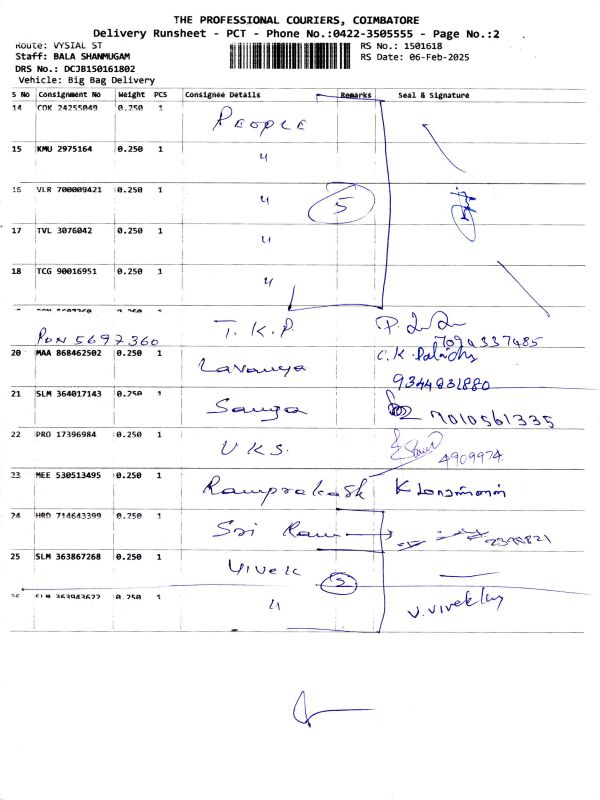 THE PROFESSIONAL COURIERS, COIMBATORE
Delivery Runsheet - PCT - Phone No.:0422-3505555 - Page No.:2
Route: VYSIAL ST
RS No.: 1501618
Staff: BALA SHANMUGAM
RS Date: 06-Feb-2025
DRS No.: DCJB150161802
Vehicle: Big Bag Delivery
S No Consignment No Weight PCS Consignee Details Remarks Seal & Signature
14 COK 24255049 0.250 1 PEOPLE
15 KMU 2975164 0.250 1 "
16 VLR 700009421 0.250 1 " 5
17 TVL 3076042 0.250 1 "
18 TCG 90016951 0.250 1 "
PDN 5697360 T.K.P. 7094337485
20 MAA 868462502 0.250 1 Lavanya C.K. 9344831880
21 SLM 364017143 0.250 1 7010561335
22 PRO 17396984 0.250 1 UKS. 4909974
23 MEE 530513495 0.250 1 Ramprakash K
24 HRD 714643399 0.250 1 Sri Ram
25 SLM 363867268 0.250 1 Vivek 2
26 SLM 363943622 0.250 1 "